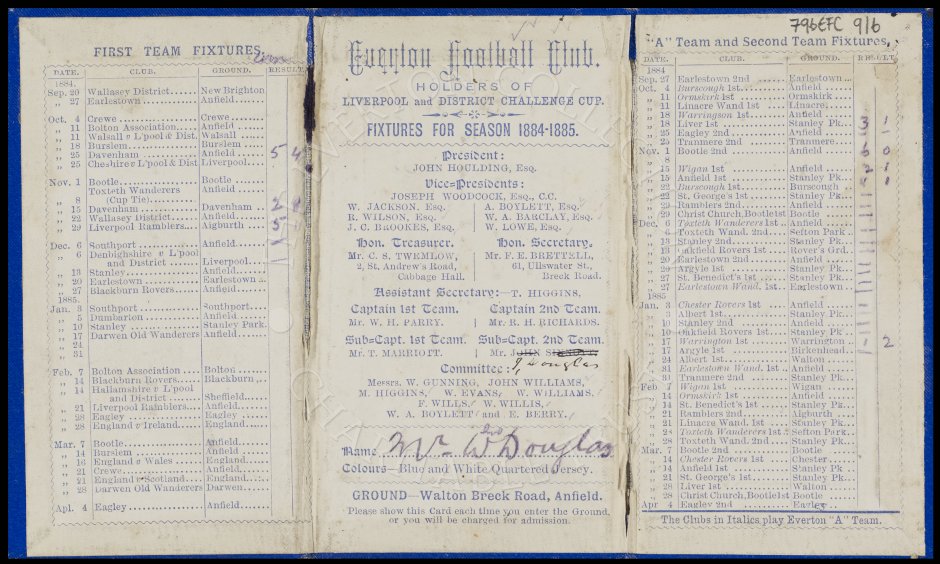 FIRST TEAM FIXTURES.
DATE. CLUB. GROUND. RESULT
1884.
Sep. 20 Wallasey District...... New Brighton
„ 27 Earlestown.............. Anfield
Oct. 4 Crewe.................... Crewe
„ 11 Bolton Association..... Anfield
„ 11 Walsall v L'pool & Dist. Walsall
„ 18 Burslem ................. Burslem
„ 25 Davenham .............. Anfield 5 4
„ 25 Cheshire v L'pool & Dist Liverpool
Nov. 1 Bootle.................... Bootle
Toxteth Wanderers
„ 8 (Cup Tie)
„ 15 Davenham .............. Davenham 2
„ 22 Wallasey District....... Anfield 5
„ 29 Liverpool Ramblers.... Aigburth
Dec. 6 Southport ............... Anfield
„ 6 Denbighshire v L'pool
and District .......... Liverpool
„ 13 Stanley................... Anfield
„ 20 Earlestown .............. Earlestown
„ 27 Blackburn Rovers...... Anfield
1885.
Jan. 3 Southport ............... Southport
„ 5 Dumbarton .............. Anfield
„ 10 Stanley ................... Stanley Park.
„ 17 Darwen Old Wanderers Anfield
„ 24
„ 31
Feb. 7 Bolton Association .... Bolton
„ 14 Blackburn Rovers...... Blackburn
„ 14 Hallamshire v L'pool
and District ........... Sheffield
„ 21 Liverpool Ramblers.... Anfield
„ 28 Eagley .................... Eagley
„ 28 England v Ireland...... England
Mar. 7 Bootle.................... Anfield
„ 14 Burslem ................. Anfield
„ 16 England v Wales ...... England
„ 21 Crewe.................... Anfield
„ 21 England v Scotland.... England
„ 28 Darwen Old Wanderers Darwen
Apl. 4 Eagley .................... Anfield
Everton Football Club.
HOLDERS OF
LIVERPOOL and DISTRICT CHALLENGE CUP.
FIXTURES FOR SEASON 1884-1885.
President:
JOHN HOULDING, ESQ.
Vice-Presidents:
JOSEPH WOODCOCK, ESQ., C.C.
W. JACKSON, ESQ. A. BOYLETT, ESQ.
R. WILSON, ESQ. W. A. BARCLAY, ESQ.
J. C. BROOKES, ESQ. W. LOWE, ESQ.
Hon. Treasurer. Hon. Secretary.
Mr. C. S. TWEMLOW, Mr. F. E. BRETTELL,
2, St. Andrew's Road, 61, Ullswater St.,
Cabbage Hall. Breck Road.
Assistant Secretary:—T. HIGGINS.
Captain 1st Team. Captain 2nd Team.
Mr. W. H. PARRY. Mr. R. H. RICHARDS.
Sub=Capt. 1st Team. Sub=Capt. 2nd Team.
Mr. T. MARRIOTT. Mr. JOHN
Committee: J. Douglas
Messrs. W. GUNNING, JOHN WILLIAMS,
M. HIGGINS, W. EVANS, W. WILLIAMS.
F. WILLS, W. WILLIS,
W. A. BOYLETT and E. BERRY.
Name Mr W Douglas
Colours—Blue and White Quartered Jersey.
GROUND—Walton Breck Road, Anfield.
Please show this Card each time you enter the Ground,
or you will be charged for admission.
796EFC 9/6
"A" Team and Second Team Fixtures.
DATE. CLUB. GROUND. RESULT
1884
Sep. 27 Earlestown 2nd ...... Earlestown
Oct. 4 Burscough 1st......... Anfield
„ 11 Ormskirk 1st .......... Ormskirk
„ 11 Linacre Wand 1st .... Linacre
„ 18 Warrington 1st........ Anfield
„ 18 Liver 1st ............... Stanley Pk. 3 1
„ 25 Eagley 2nd ............ Anfield
„ 25 Tranmere 2nd ........ Tranmere
Nov. 1 Bootle 2nd ............. Anfield 6 0
„ 8
„ 15 Wigan 1st .............. Anfield
„ 15 Anfield 1st ............. Stanley Pk.
„ 22 Burscough 1st......... Burscough
„ 22 St. George's 1st ....... Stanley Pk.
„ 29 Ramblers 2nd......... Anfield
„ 29 Christ Church, Bootle1st Bootle
Dec. 6 Toxteth Wanderers 1st Anfield
„ 6 Toxteth Wand. 2nd... Sefton Park
„ 13 Stanley 2nd............ Stanley Pk.
„ 13 Oakfield Rovers 1st... Rover's Grd.
„ 20 Earlestown 2nd ...... Anfield
„ 20 Argyle 1st .............. Stanley Pk.
„ 27 St. Benedict's 1st ..... Stanley Pk.
„ 27 Earlestown Wand. 1st Earlestown
1885
Jan. 3 Chester Rovers 1st ... Anfield
„ 3 Albert 1st............... Stanley Pk.
„ 10 Stanley 2nd ........... Anfield
„ 10 Oakfield Rovers 1st... Stanley Pk.
„ 17 Warrington 1st........ Warrington
„ 17 Argyle 1st .............. Birkenhead 2
„ 24 Albert 1st............... Walton
„ 31 Earlestown Wand. 1st Anfield
„ 31 Tranmere 2nd ........ Stanley Pk.
Feb 7 Wigan 1st .............. Wigan
„ 14 Ormskirk 1st .......... Anfield
„ 14 St. Benedict's 1st ..... Stanley Pk.
„ 21 Ramblers 2nd......... Aigburth
„ 21 Linacre Wand. 1st ... Stanley Pk.
„ 28 Toxteth Wanderers 1st Sefton Park
„ 28 Toxteth Wand. 2nd... Stanley Pk.
Mar. 7 Bootle 2nd ............. Bootle
„ 14 Chester Rovers 1st ... Chester
„ 14 Anfield 1st ............. Stanley Pk
„ 21 St. George's 1st ....... Stanley Pk.
„ 28 Liver 1st ............... Walton
„ 28 Christ Church, Bootle1st Bootle
Apr 4 Eagley 2nd ............ Eagley
The Clubs in Italics play Everton "A" Team.